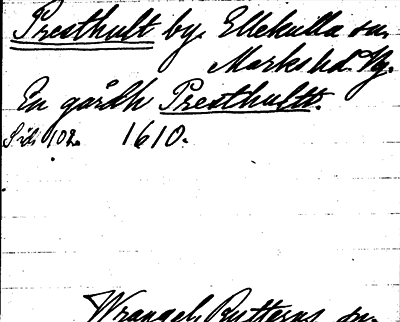 Presthult by. Ellekulla sn.
Marks hd. Vg.
En gårdh Presthultt.
Sid. 102. 1610.
Wrangels Rytterns